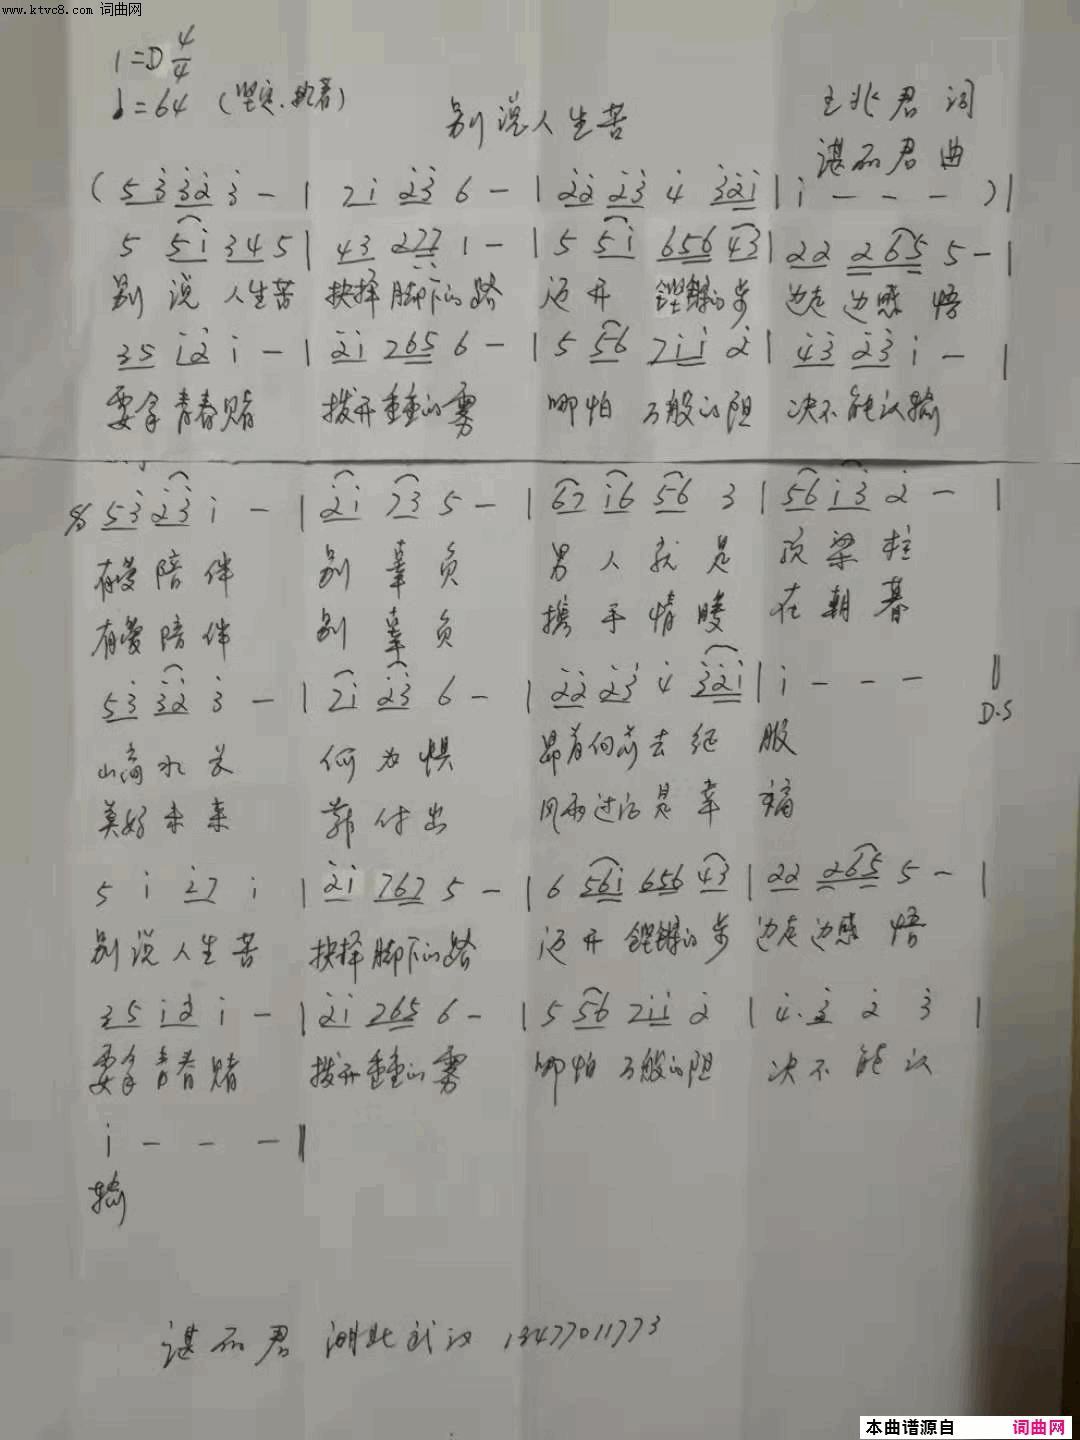 www.ktvc8.com 词曲网
1=D 4/4
♩=64 (坚定、执着)
别说人生苦
王兆君 词
谌丽君 曲
(5 3̇ 3̇ 2̇ 3̇ - | 7 1̇ 2̇ 3̇ 6 - | 2̇ 2̇ 2̇ 3̇ 4̇ 3̇ 2̇ 1̇ | 1̇ - - - )|
5 5 1̇ 3 4 5 | 4 3 2 7 7 1 - | 5 5 1̇ 6 5 6 4 3 | 2 2 2 6 5 5 - |
别 说 人生苦 抉择脚下的路 迈 开 铿锵的步 边走边感 悟
3 5 1̇ 2̇ 1̇ - | 2̇ 1̇ 7 6 5 6 - | 5 5 6 7 1̇ 1̇ 2̇ | 4̇ 3̇ 2̇ 3̇ 1̇ - |
要拿青春赌 拨开重重的雾 哪怕 万般的阻 决不能认输
5 3̇ 2̇ 3̇ 1̇ - | 2̇ 1̇ 7 3 5 - | 6 7 1̇ 6 5 6 3 | 5 6 1̇ 3̇ 2̇ - |
有爱陪伴 别 辜 负 男 人 就 是 顶 梁 柱
有爱陪伴 别 辜 负 携 手 情 暖 在 朝 暮
5 3̇ 3̇ 2̇ 3̇ - | 7 1̇ 2̇ 3̇ 6 - | 2̇ 2̇ 2̇ 3̇ 4̇ 3̇ 2̇ 1̇ | 1̇ - - - ‖
D.S
山高水长 何 为 惧 昂首向前去 征 服
美好未来 靠 付 出 风雨过后是 幸 福
5 1̇ 2̇ 7 1̇ | 2̇ 1̇ 7 6 7 5 - | 6 5 6 1̇ 6 5 6 4 3 | 2 2 2 6 5 5 - |
别 说 人生 苦 抉择脚下的路 迈 开 铿锵的步 边走边感 悟
3 5 1̇ 2̇ 1̇ - | 2̇ 1̇ 7 6 5 6 - | 5 5 6 7 1̇ 1̇ 2̇ | 4̇. 3̇ 2̇ 3̇ |
要拿青春赌 拨开重重的雾 哪怕 万般的阻 决 不 能 认
1̇ - - - ‖
输
谌丽君 湖北武汉 13477011773
本曲谱源自 词曲网